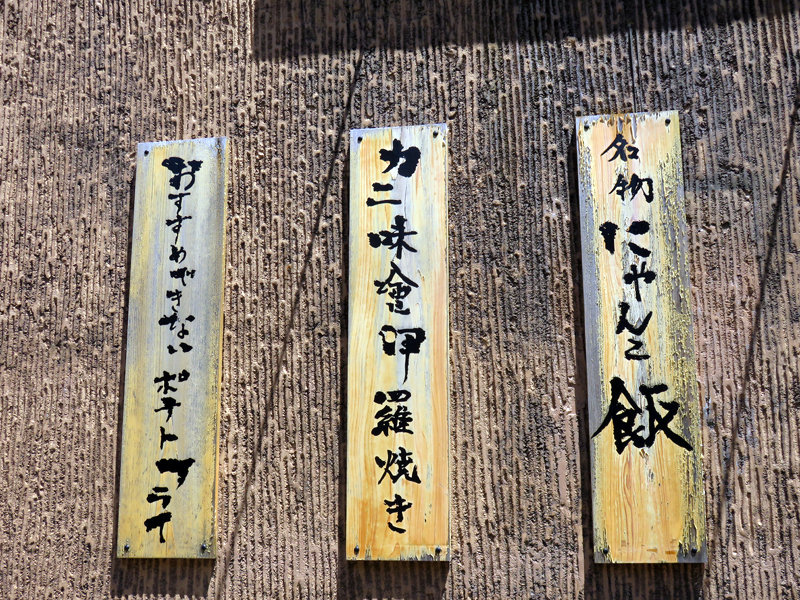 名物にゃんこ飯
カニ味噌甲羅焼き
おすすめできないポテトフライ